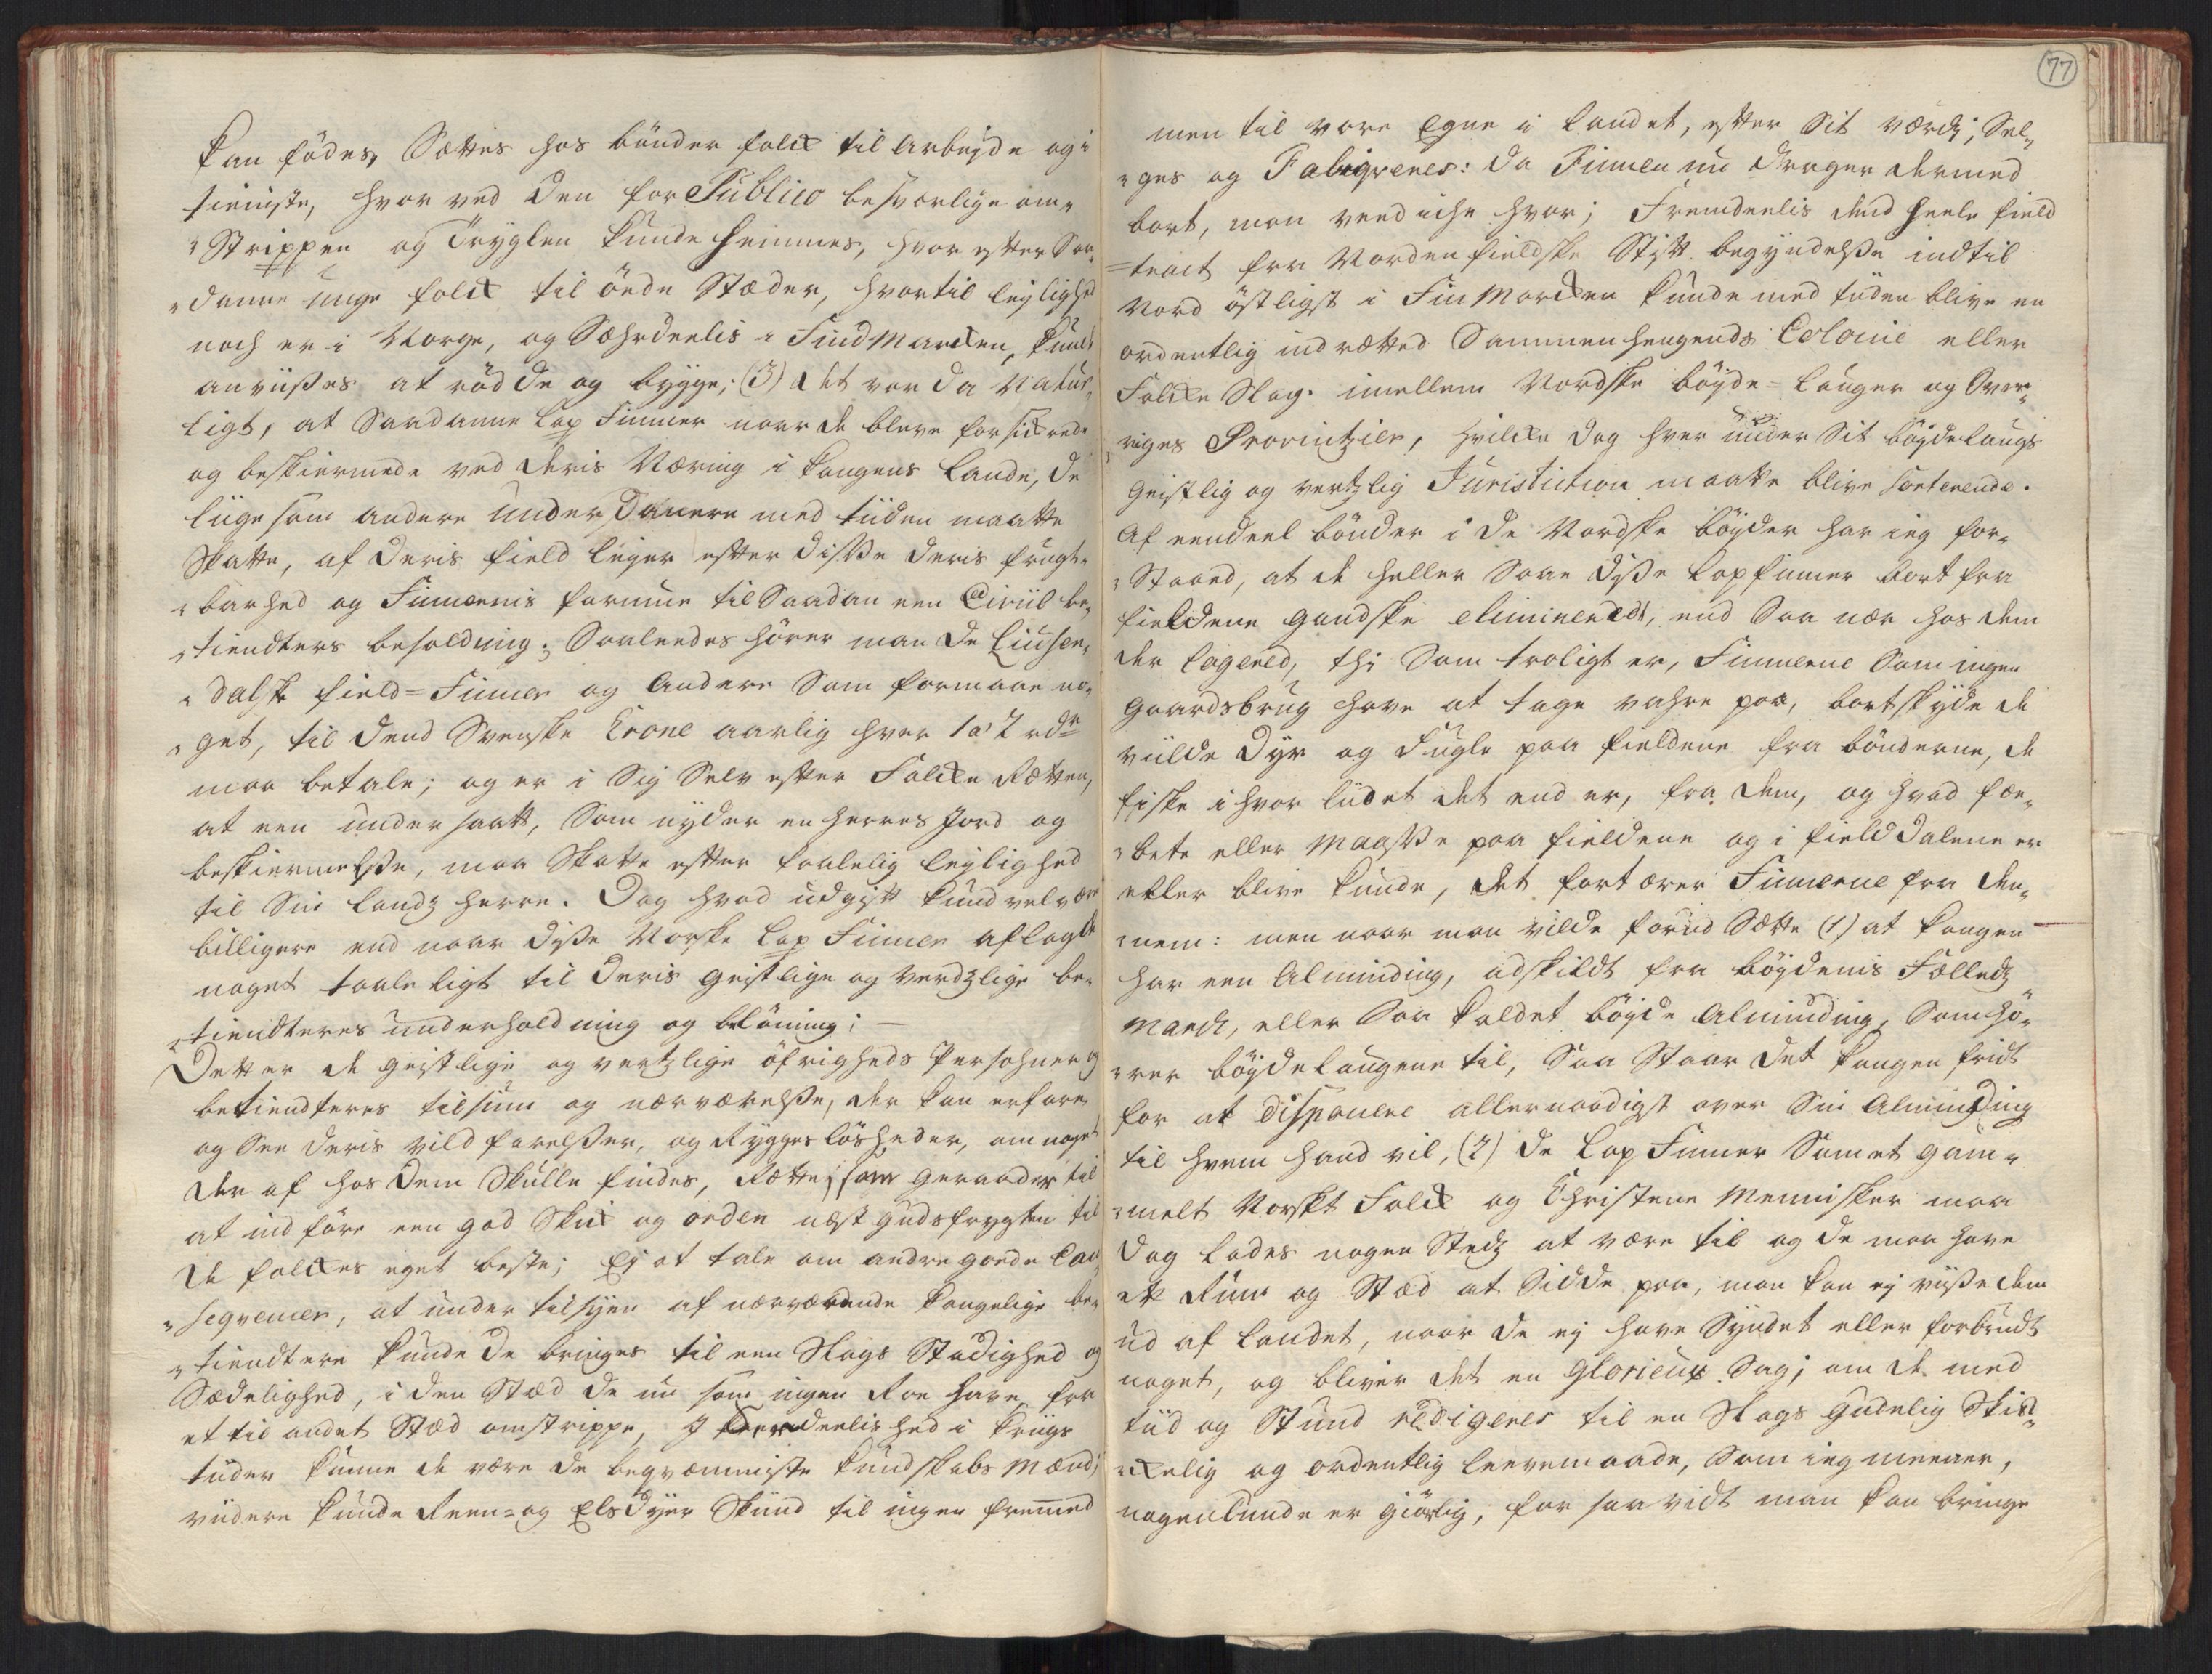 kan fødes, Sættes hos bønder folck til Arbejde og i
tieniste, hvor ved den for Publico besværlige om„
„Strippen og Tryglen kunde hemmes, hvor efter Saa„
„danne unge folck til øede Stæder, hvortil leylighed
noch er i Norge, og Sæhrdeelis i FindMarcken, kunde
anviises at rødde og bygge; (3) det var da Natur„
ligt, at Saadanne Lap Finner naar de bleve forsickrede
og beskiermede ved deris Næring i kongens Lande, de
liige som andere Underdanere med tiiden maatte
Skatte, af deris field leyer efter disse deris frugt„
„barhed og Finnernis formue til Saadan een Civiil be„
„tiendters besoldning; Saaleedes hører man de Liusne„
„dalske field=Finner og Andere Som formaae no„
„get, til dend Svenske Crone aarlig hver 1 a' 2 rdr
maa betale; og er i Sig Selv efter Folcke Rætten,
at een undersaatt, Som nyder en herres Jord og
beskiermelsse, maa Skatte efter taalelig leylighed
til Sin Landz herre. Dog hvad udgift kund vel være
billigere end naar disse Norske Lap Finner aflagde
noget taaleligt til deris geistlige og verdzlige be„
„tiendteres underholdning og beløning; —
Dett er de geistlige og vertzlige øfrigheds Persohner og
betiendteres tilsiun og nærværelsse, der kan erfare
og See deris vildfarelsser, og Ryggesløsheder, om noget
der af hos dem Skulle findes, Rætte, som geraader til
at indføre een god Skick og orden næst gudsfrygten til
de folckes eget beste; Ej at tale om andre goede Con„
„seqvencer, at under tilsyen af nærværende kongelige be„
„tiendtere kunde de bringes til een Slags Stadighed og
Sædelighed, i den Stæd de nu som ingen Roe have, for
et til andet Stæd omstrippe, I særdeelished i krigs
tiider kunne de være de beqvæmmiste kundskabs Mænd;
viidere kunde Reen= og Elsdyer Skiind til ingen fremmed
77
men til vore Egne i Landet, efter Sit værd, Sel„
„ges og Fabiqveres: da Finnen nu drager dermed
bort, man veed iche hvor; Fremdeelis dend heele field
=tract fra Nordenfieldske Stift begyndelsse indtil
Nord østligst i FinMarcken kunde med tiiden blive en
ordentlig indrætted Sammenhengends Colonie eller
Folcke Slag. imellem Nordske bøyde=lauger og Sver„
„riges Provintzier, hvilcke dog hver under Sit bøydelaugs
Geistlig og vertzlig Juristiction maatte blive sorterende.
Af eendeel bønder i de Nordske bøyder har ieg for„
„Staaed, at de heller Saae disse Lapfinner bort fra
fieldene gandske elimineredt, end Saa nær hos dem
der logered, thi Som troligt er, Finnerne Som ingen
Gaardsbrug have at tage vahre paa, bortskyde de
viilde dyr og Fugle paa fieldene fra bønderne, de
fiske i hvor liidet det end er, fra dem, og hvad fæe„
„bete eller Maasse paa fieldene og i field dalene er
eller blive kunde, det fortærer Finnerne fra den„
„nem: men naar man vilde forud Sætte (1) at kongen
har een Alminding, adskildt fra bøydenis Fælledz
March, eller Saa kaldet bøyde Alminding, Som hø„
„rer bøydelaugene til, Saa Staar det kongen fridt
for at disponere allernaadigst over Sin Alminding
til hvem hand vil, (2) de Lap Finner Som et gam„
„melt Norskt Folck og Christene Mennisker maa
dog lades nogen Stedz at være til og de maa have
et Rum og Stæd at Sidde paa, man kan ej viise dem
ud af Landet, naar de ej have Syndet eller forbrudt
noget, og bliver det en glorieux Sag; om de med
tiid og Stund redigeres til en Slags Gudelig Skic„
„kelig og ordentlig leevemaade, Som ieg meener,
nogenlunde er giørlig, for saa vidt man kan bringe